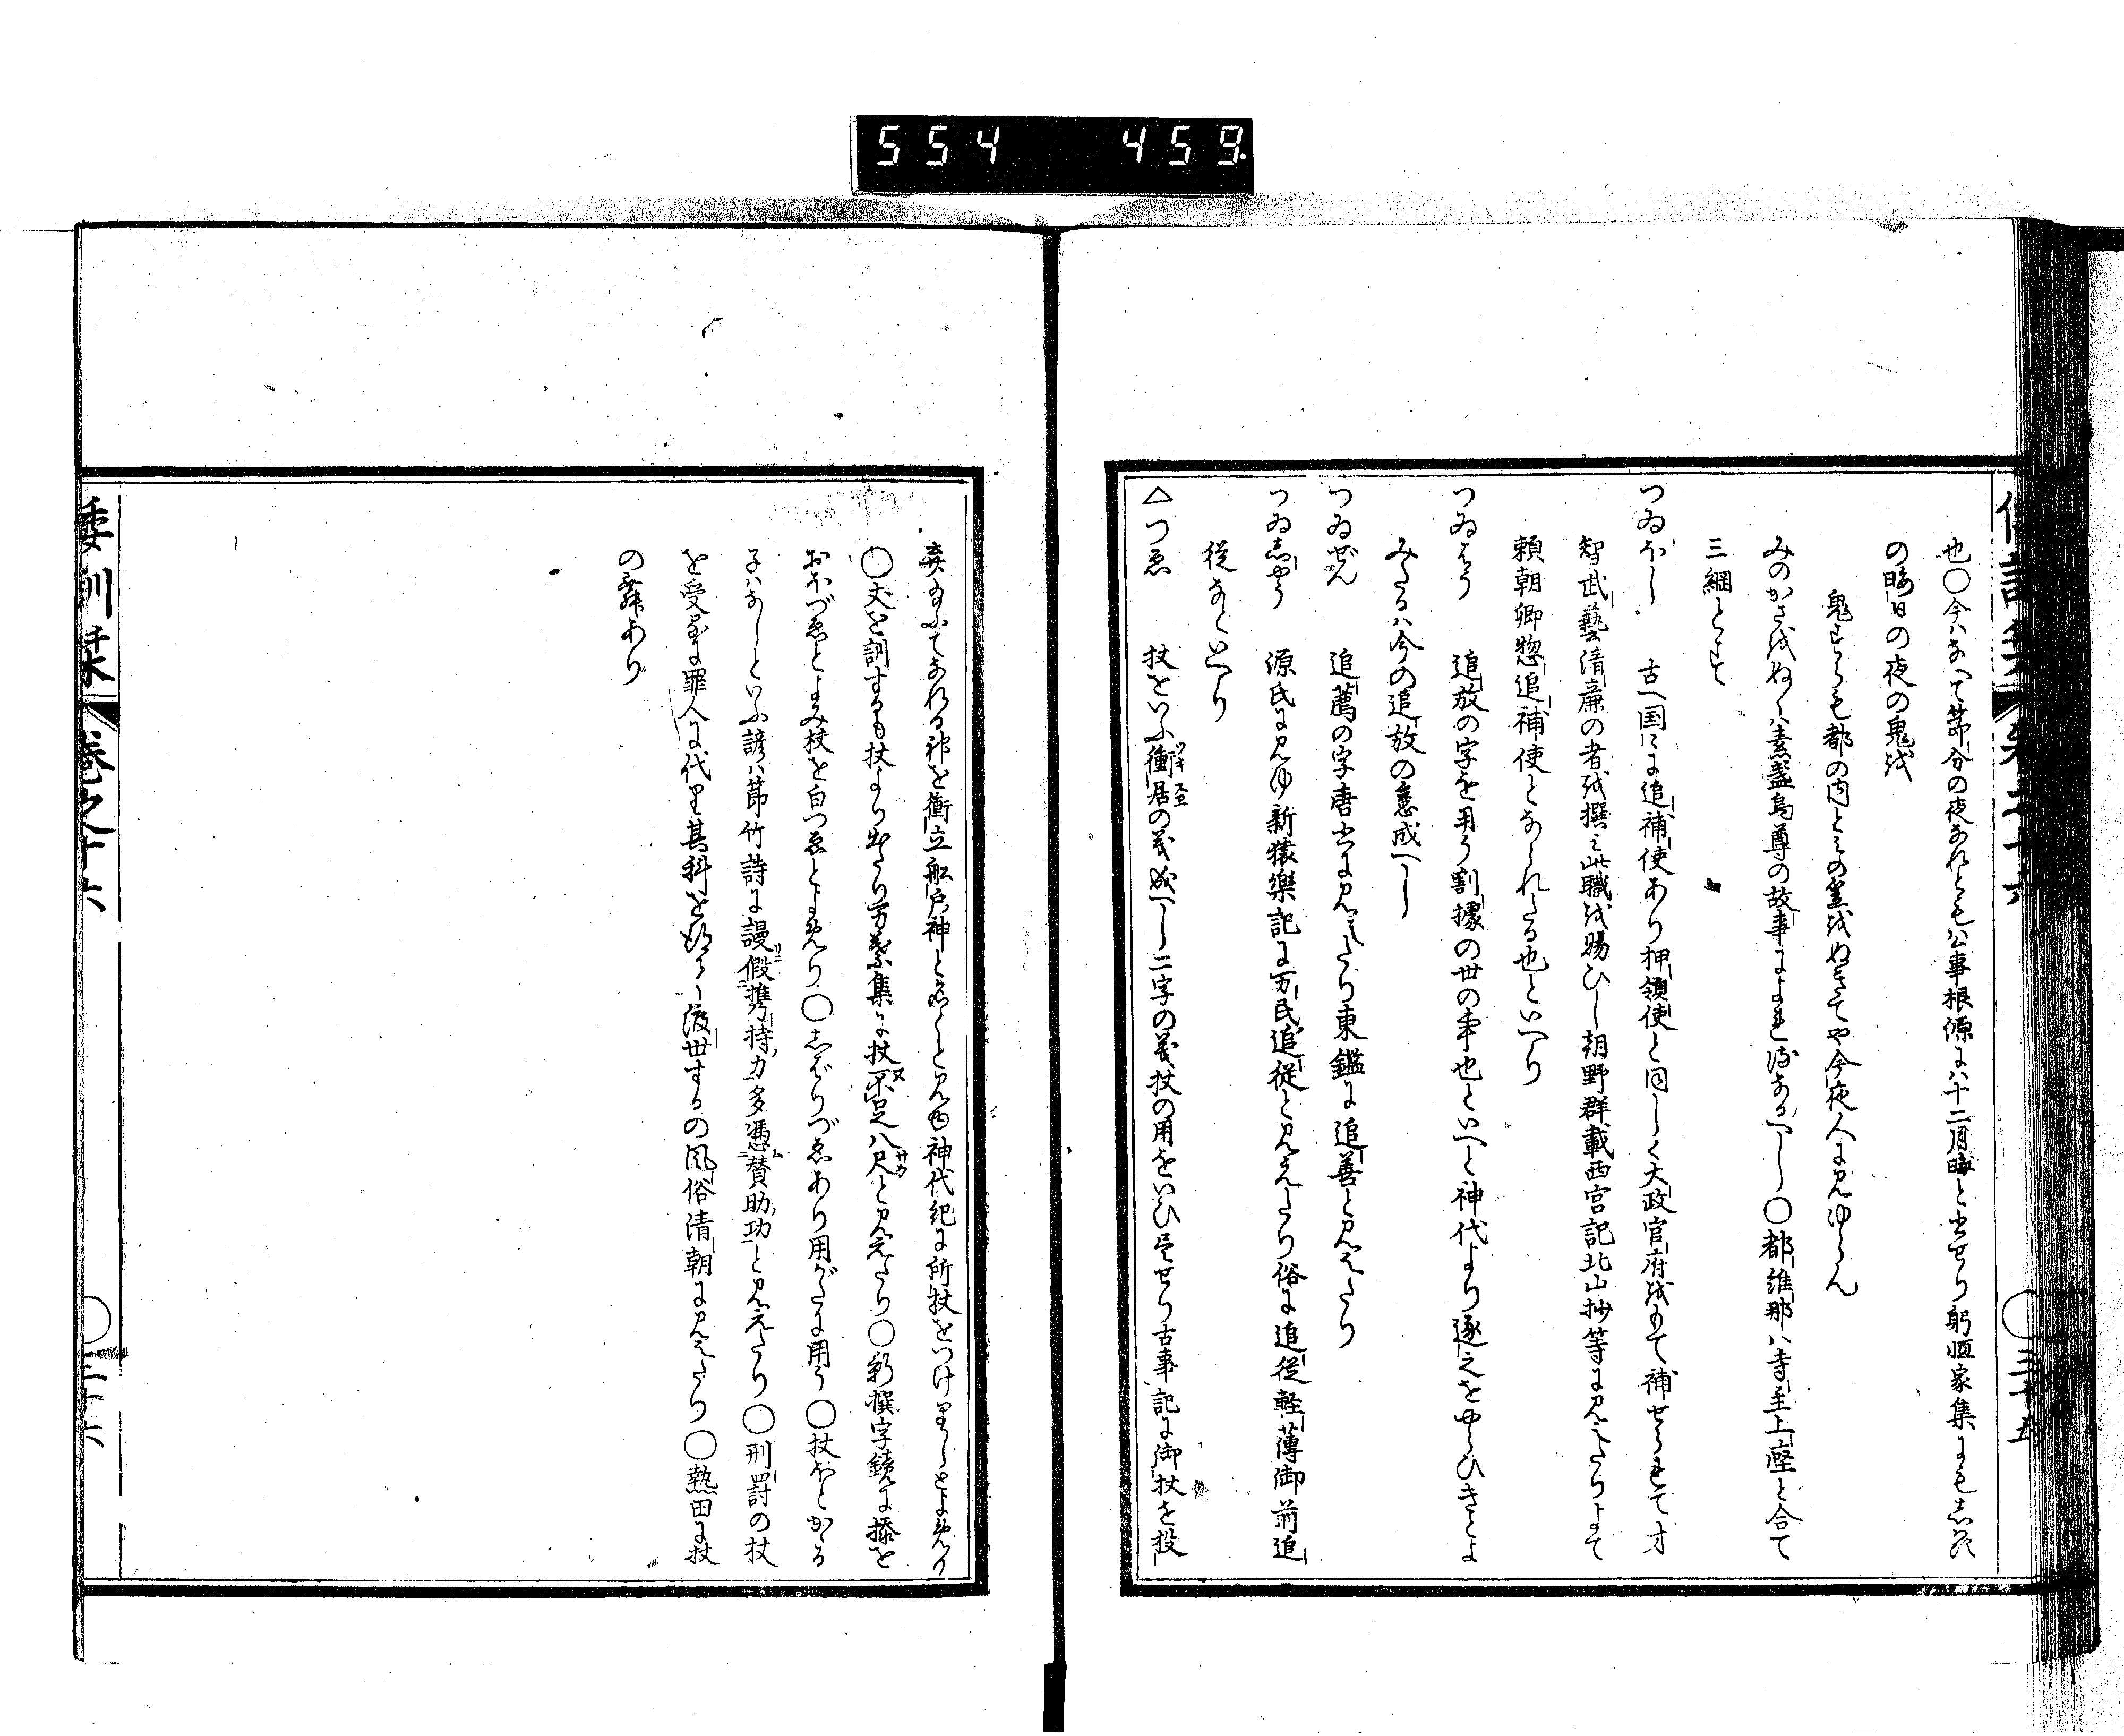 554 459.
也○今ハなへて節分の夜なれとも公事根源にハ十二月晦と出せり躬恒家集にも志はす
の晦日の夜の鬼を
鬼すらも都の内とみの笠をぬきてや今夜人に見ゆらん
みのかさをぬくハ素盞烏尊の故事によれる諺なるへし○都維那ハ寺主上座と合て
三綱とす
つゐほし 古へ国々に追補使あり押領使と同しく大政官府をもて補せられて才
智武藝清廉の者を撰み此職を賜ひし朝野群載西宮記北山抄等に見えたりよて
頼朝卿惣追補使となられたる也といへり
つゐはう 追放の字を用う割據の世の事也といへと神代より逐之をやらひきとよ
みたるハ今の追放の意成へし
つゐぜん 追薦の字唐書に見えたり東鑑に追善と見えたり
つゐ志やう 源氏に見ゆ新猿樂記に万民追従と見えたり俗に追従軽薄御前追
従なといへり
△つゑ 杖をいふ衝居の義成へし二字の義杖の用をいひ尽せり古事記に御杖を投
ツキ スヱ
棄給ふてなれる神を衝立船戸神と名くと見ゆ神代紀に所杖をつけりしとよめり
○丈を訓するも杖より出たり万葉集に杖不足八尺と見えたり○新撰字鏡に㮈を
おほづゑとよみ杖を白つゑとよめり○志ばりづゑあり用がたに用う○杖ほとかゝる
子ハなしといふ諺ハ節竹詩に謾假携持力多憑賛助功と見えたり○刑罰の杖
を受るに罪人に代りて其科を蒙らし渡世するの風俗清朝に見えたり○熱田に杖
の舞あり
倭訓栞 巻之十六 ○三十五
倭訓栞 巻之十六 ○三十六